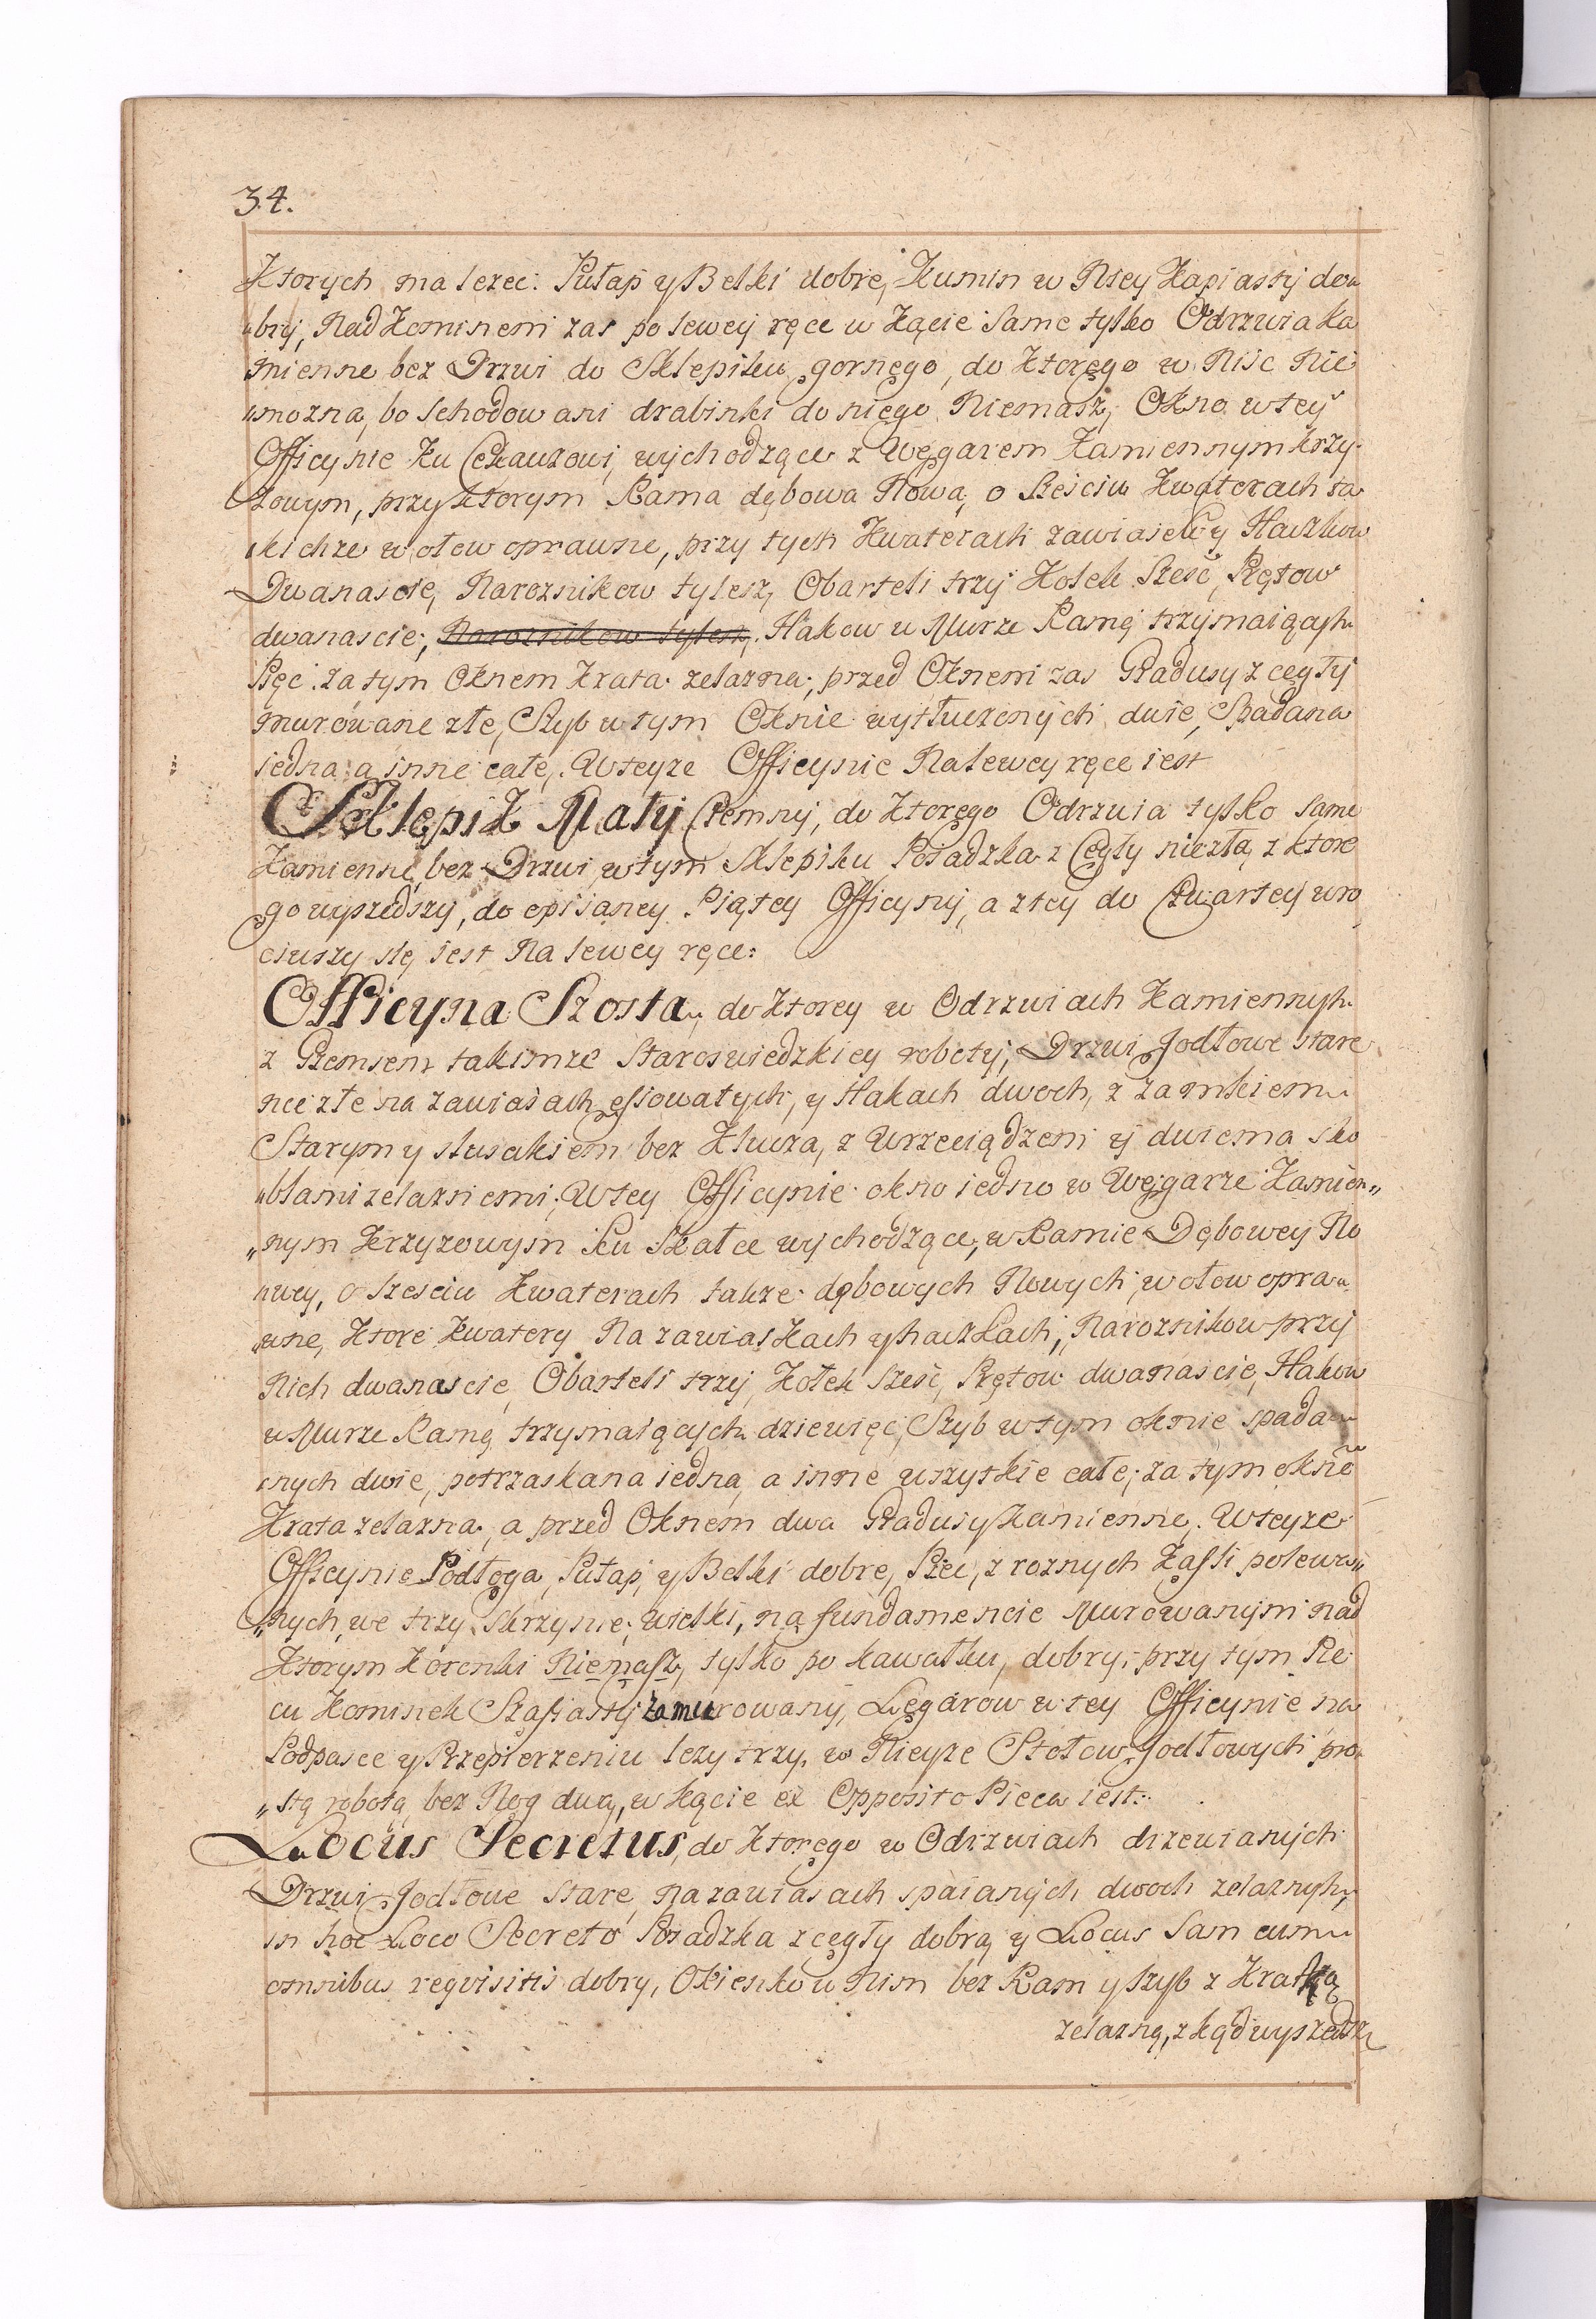 34.
Ktorych ma lezec: Pułap y Belki dobre, Kumin w Niey Kapiasty do„
„bry, Nad Kominem zas po lewey ręce w Kącie same tylko Odrzwia Ka
mienne bez Drzwi do Sklepiku gornego, do Ktorego w Niść Nie
„mozna, bo Schodow ani drabinki do niego Niemasz, Okno w tey
Officynie Ku Cekauzowi wychodzące z Węgarem Kamiennym krzy„
zowym, przy Ktorym Rama dębowa Nowa, o Szesciu Kwaterach ta
„kichze w ołow oprawne, przy tych Kwaterach zawiasek y Haczkow
Dwanascie, Naroznikow tylesz, Obarteli trzy Kołek Szesć, Prętow
dwanascie, Naroznikow tylesz, Hakow w Murze Ramę trzymaiących
Pięć. Za tym Oknem Krata zelazna, przed Oknem zas Gradusy z cegły
murowane złe, Szyb w tym Oknie wytłuczonych dwie, Spadana
iedna, a inne całe. W teyze Officynie Na lewey ręce iest
Sklepik Mały Ciemny, do Ktorego Odrzwia tylko same
Kamienne, bez Drzwi, w tym Sklepiku Posadzka z Cegły niezła, z ktore
go wyszedszy, do opisaney Piątey Officyny, a z tey do Czwartey wro
ciwszy się iest Na lewey ręce:
Officyna Szosta, do Ktorey w Odrzwiach Kamiennych
z Gzemsem takimze Staroswiedzkiey roboty, Drzwi Jodłowe stare
nie złe na zawiasach essowatych, y Hakach dwoch, z zamkiem
Starym y slusakiem bez Klucza, z Wrzeciądzem y dwiema sko
„blami zelaznemi, W tey Officynie okno iedno w Węgarze Kamien„
„nym Krzyzowym Ku Skałce wychodzące, w Ramie Dębowey No
„wey, o szesciu Kwaterach takze dębowych Nowych, w ołow opra„
„wne, Ktore Kwatery Na zawiaskach y haczkach, Naroznikow przy
Nich dwanascie, Obarteli trzy, Kołek szesć, Prętow dwanascie, Hakow
w Murze Ramę trzymaiących dziewięć, Szyb w tym oknie spada„
„nych dwie, potrzaskana iedna, a inne wszytkie całe; za tym oknem
Krata zelazna, a przed Oknem dwa Gradusy Kamienne. W teyze
Officynie Podłoga, Pułap, y Belki dobre, Piec, z roznych Kafli polewa„
„nych, we trzy Skrzynie, wielki, na fundamencie Murowanym nad
Ktorym Korenki Niemasz, tylko po kawałku, dobry, przy tym Pie
cu Kominek Szafiasty zamurowany, Legarow w tey Officynie na
Podpasce y Przepierzeniu lezy trzy, w Nieyze Stołow Jodłowych pro„
„stą robotą bez Nog dwa, w Kącie ex Opposito Pieca iest.
Locus Secretus, do Ktorego w Odrzwiach drzewianych
Drzwi Jodłowe stare, na zawiasach spaianych dwoch zelaznych,
in hoc Loco Secreto Posadzka z cegły dobra, y Locus sam cum
omnibus requisitis dobry, Okienko w Nim bez Ram y Szyb z Kratką
zelazną, z kąd wyszedszy